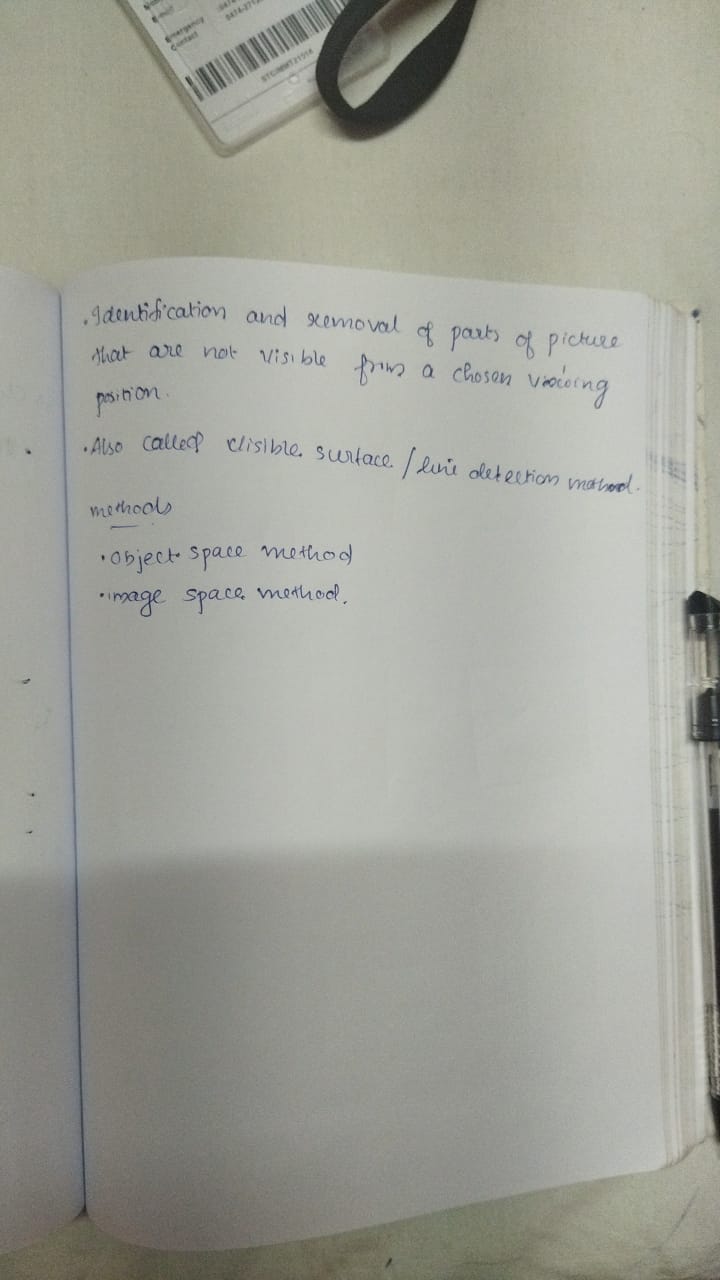 Emergency
Contact
STC/MMT21014
.Identification and removal of parts of picture
that are not visible from a chosen viewing
position.
.Also called visible surface/line detection method.
methods
.object space method
.image space method.